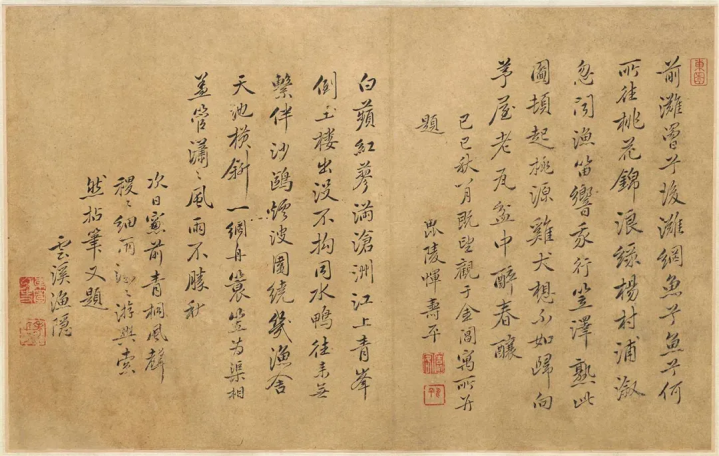 東園
前灘罾兮後灘網魚兮魚兮何
所往桃花錦浪綠楊村浦漵
忽聞漁笛響我行笠澤熟此
圖頓起桃源雞犬想不如歸向
茅屋老瓦盆中醉春釀
己巳秋八月既望觀于金閶寓所并
題 毗陵惲壽平
白蘋紅蓼滿滄洲江上青峯
倒玉樓出沒不拘同水鴨往來無
繫伴沙鷗煙波圍繞幾漁舍
天地橫斜一網舟簑笠為渠相
蓋管瀟〻風雨不勝秋
次日窗前青桐風聲
稷〻細雨〻游興索
然拈筆又題
雲溪漁隱